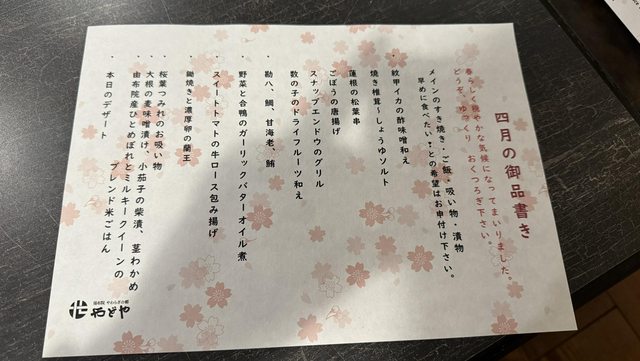 四月の御品書き
春らしく穏やかな気候になってまいりました。
どうぞ、ゆっくり おくつろぎ下さい。
メインのすき焼き・ご飯・吸い物・漬物
早めに食べたい！との希望はお申付け下さい。
・ 紋甲イカの酢味噌和え
焼き椎茸ーしょうゆソルト
蓮根の松葉串
ごぼうの唐揚げ
スナップエンドウのグリル
数の子のドライフルーツ和え
・ 勘八、鯛、甘海老、鮪
・ 野菜と合鴨のガーリックバターオイル煮
・ スイートトマトの牛ロース包み揚げ
・ 鋤焼きと濃厚卵の蘭王
・ 桜葉つみれのお吸い物
・ 大根の麦味噌漬け、小茄子の柴漬、茎わかめ
・ 由布院産ひとめぼれとミルキークイーンの
ブレンド米ごはん
・ 本日のデザート
由布院 やわらぎの郷
やどや